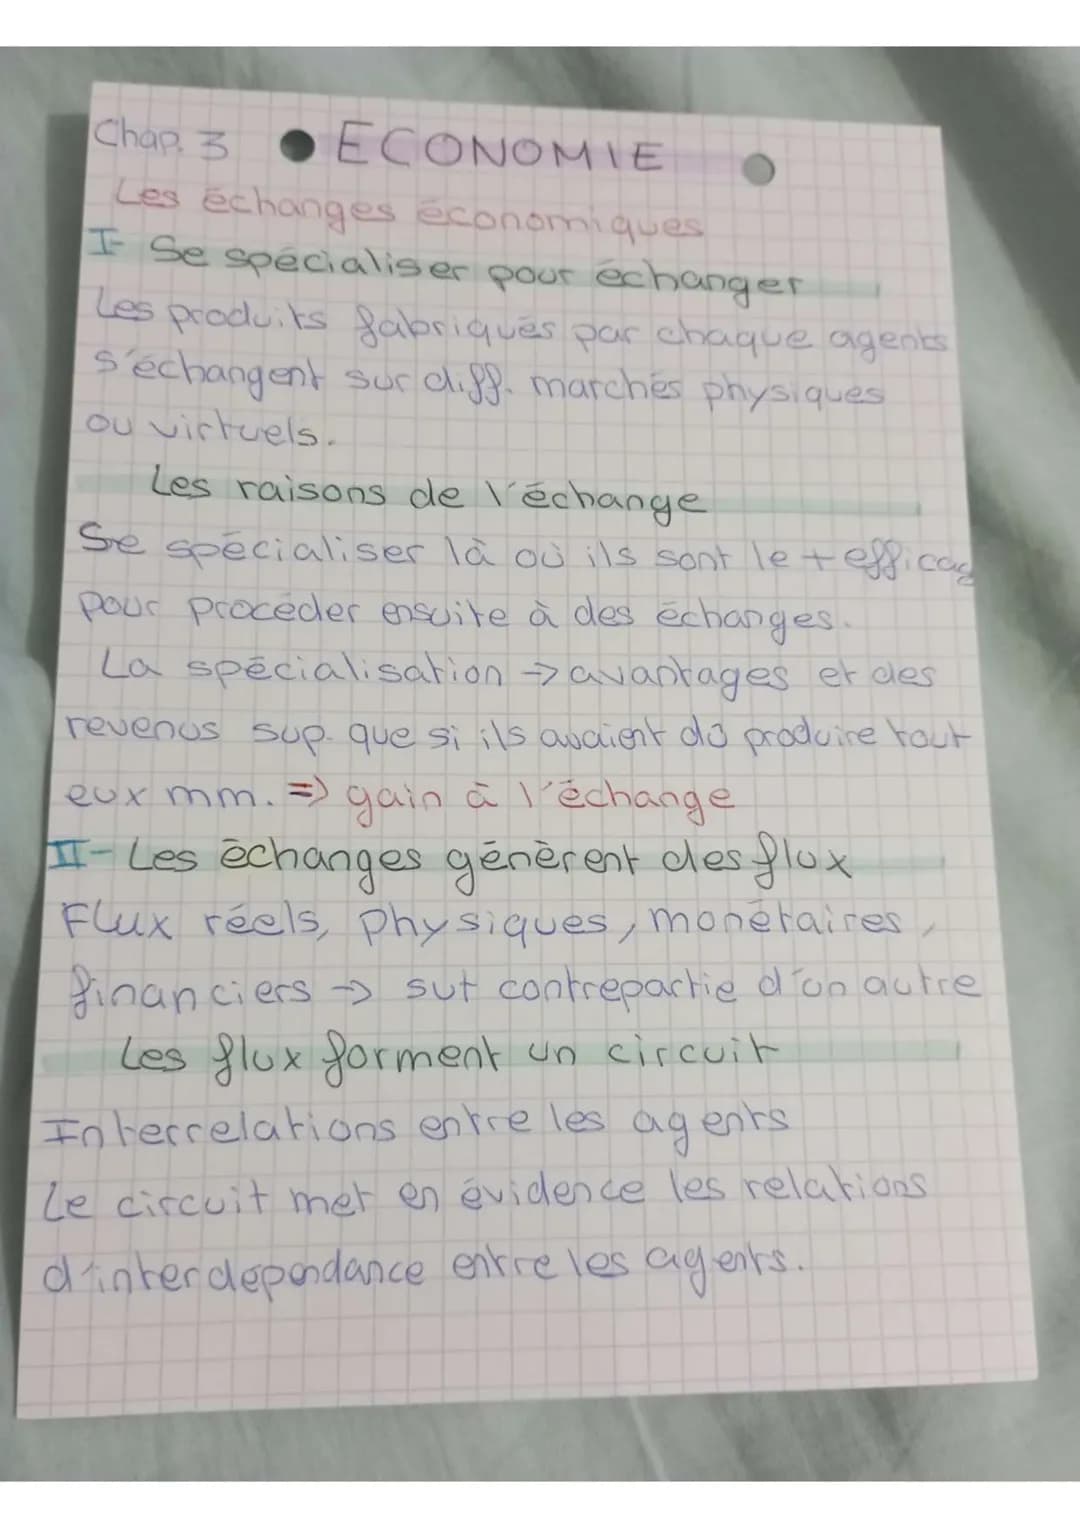 Chap. 3 ECONOMIE
Les échanges économiques
I- Se spécialiser pour échanger
Les produits fabriqués par chaque agents
s'échangent sur diff. marchés physiques
ou virtuels.
Les raisons de l'échange
Se spécialiser là où ils sont le + efficac
pour procéder ensuite à des échanges.
La spécialisation -> avantages et des
revenus sup. que si ils avaient dû produire tout
eux mm. => gain à l'échange
II- Les échanges génèrent des flux
Flux réels, physiques, monétaires,
financiers -> sut contrepartie d'un autre
Les flux forment un circuit
Interrelations entre les agents
Le circuit met en évidence les relations
d'interdépendance entre les agents.